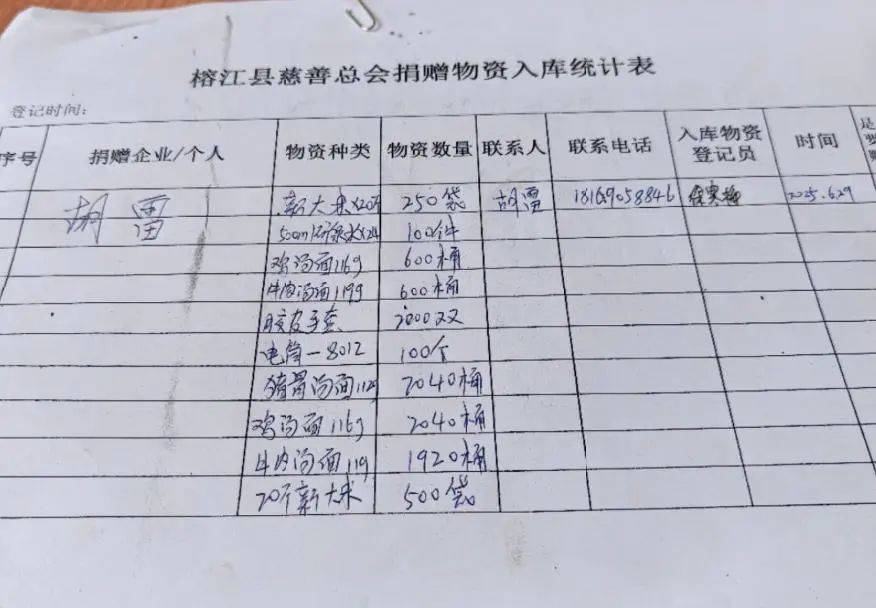 榕江县慈善总会捐赠物资入库统计表
登记时间:
序号 捐赠企业/个人 物资种类 物资数量 联系人 联系电话 入库物资登记员 时间 是
胡雷 新大米X20斤 250袋 胡雷 18169058846 2025.6.29
500ml 水X24 100件
鸡汤面116g 600桶
牛肉汤面119g 600桶
胶皮手套 2000双
电筒-8012 100个
猪骨汤面112g 2040桶
鸡汤面116g 2040桶
牛肉汤面119 1920桶
20斤新大米 500袋